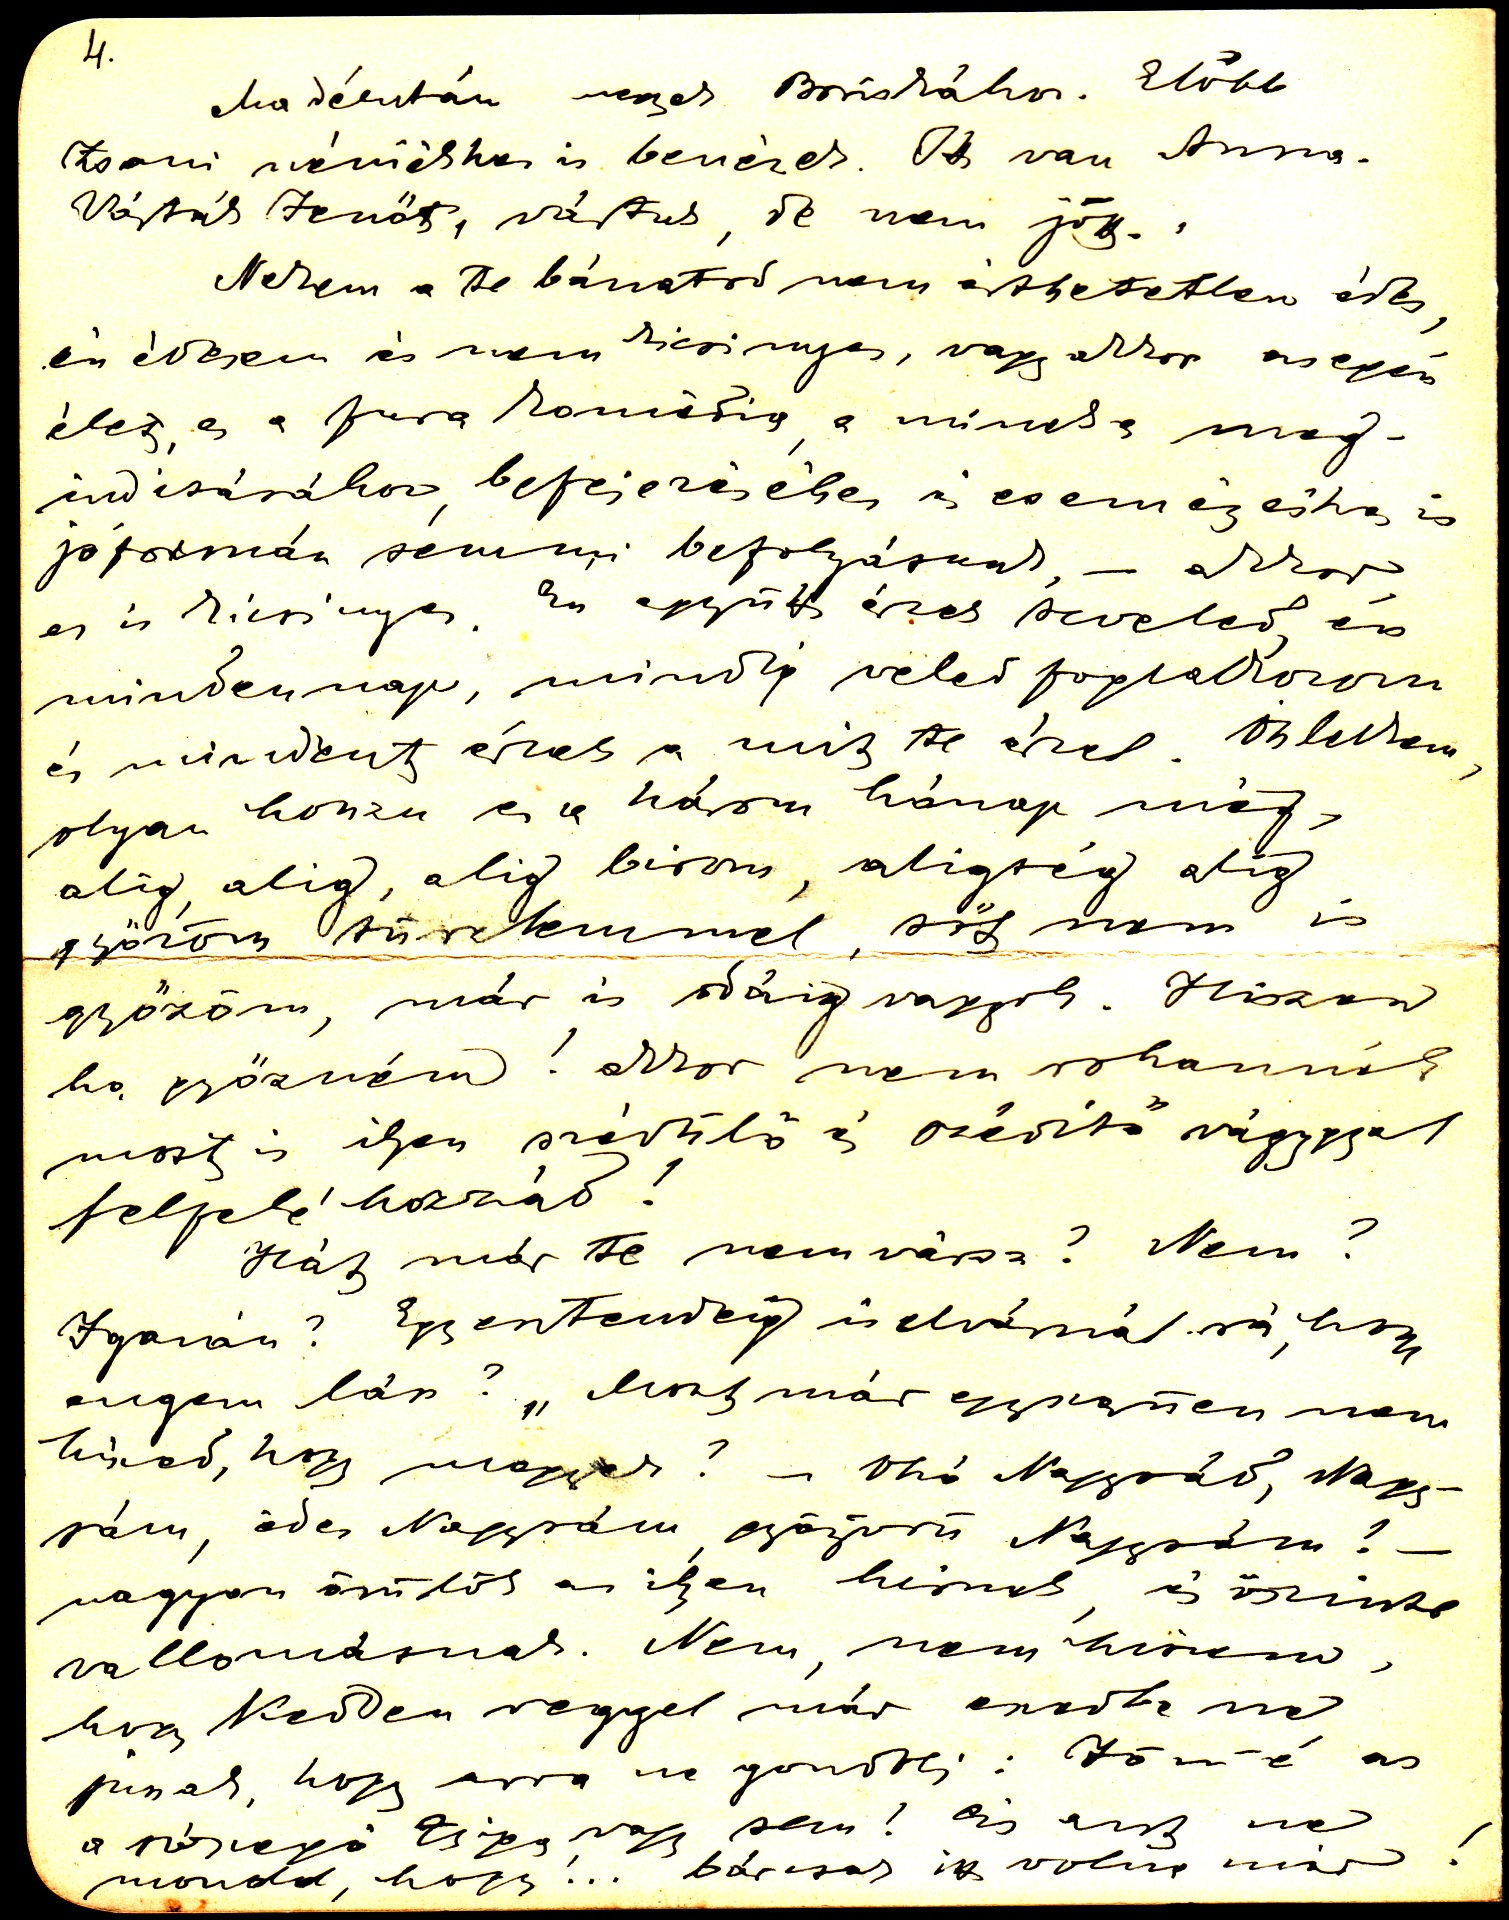 4.
Ma délután megyek Boriskához. Előbb
Zsani néniékhez is benézek. Itt van Anna.
Vártuk Jenőt, vártuk, de nem jött.
Nekem a te bánatod nem érthetetlen édes,
én édesem és nem kicsinyes, vagy akkor az egész
élet, ez a fura komédia, a minek a meg-
indításához, befejezéséhez és eseményeihez is
jóformán semmi befolyásunk, — akkor
ez is kicsinyes. Én együtt érzek teveled, én
mindennap, mindíg veled foglalkozom
és mindent érzek a mit te érzel. Lelkem,
olyan hosszu ez a három hónap még,
alig, alig, alig birom, aligség alig
győzöm türelemmel, sőt nem is
győzöm, már is odáig vagyok. Hiszen
ha győzném! akkor nem rohannék
most is ilyen szédülő és szédítő vággyal
felfelé hozzád!
Hát már te nem vársz? Nem?
Igazán? Egy esztendeig is elvárnál rá, hogy
engem láss? „Most már egyszerüen nem
hiszed, hogy megyek? — Ohó Nagysád, Nagy-
sám, édes Nagysám, gyönyörü Nagysám! —
nagyon örülök az ilyen hirnek, és őszinte
vallomásnak. Nem, nem hiszem,
hogy Kedden reggel már eszedbe ne
jussak, hogy arra ne gondolj: Jön-é az
a Zsiga vagy sem! És azt ne
mondd, hogy!... bárcsak itt volna már!